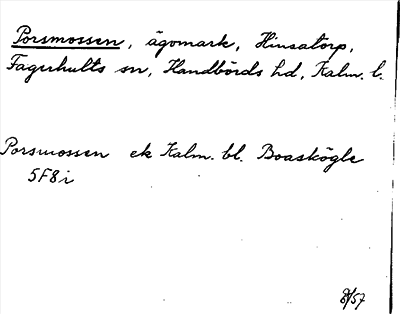 Porsmossen, ägomark, Hinsatorp,
Fagerhults sn, Handbörds hd, Kalm. l.
Porsmossen ek Kalm. bl. Boaskögle
5F8i